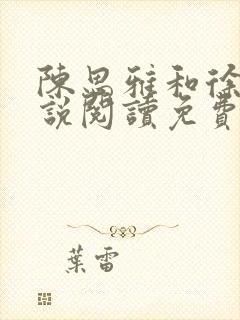 陳思雅和徐
說閱讀免費
葉雷